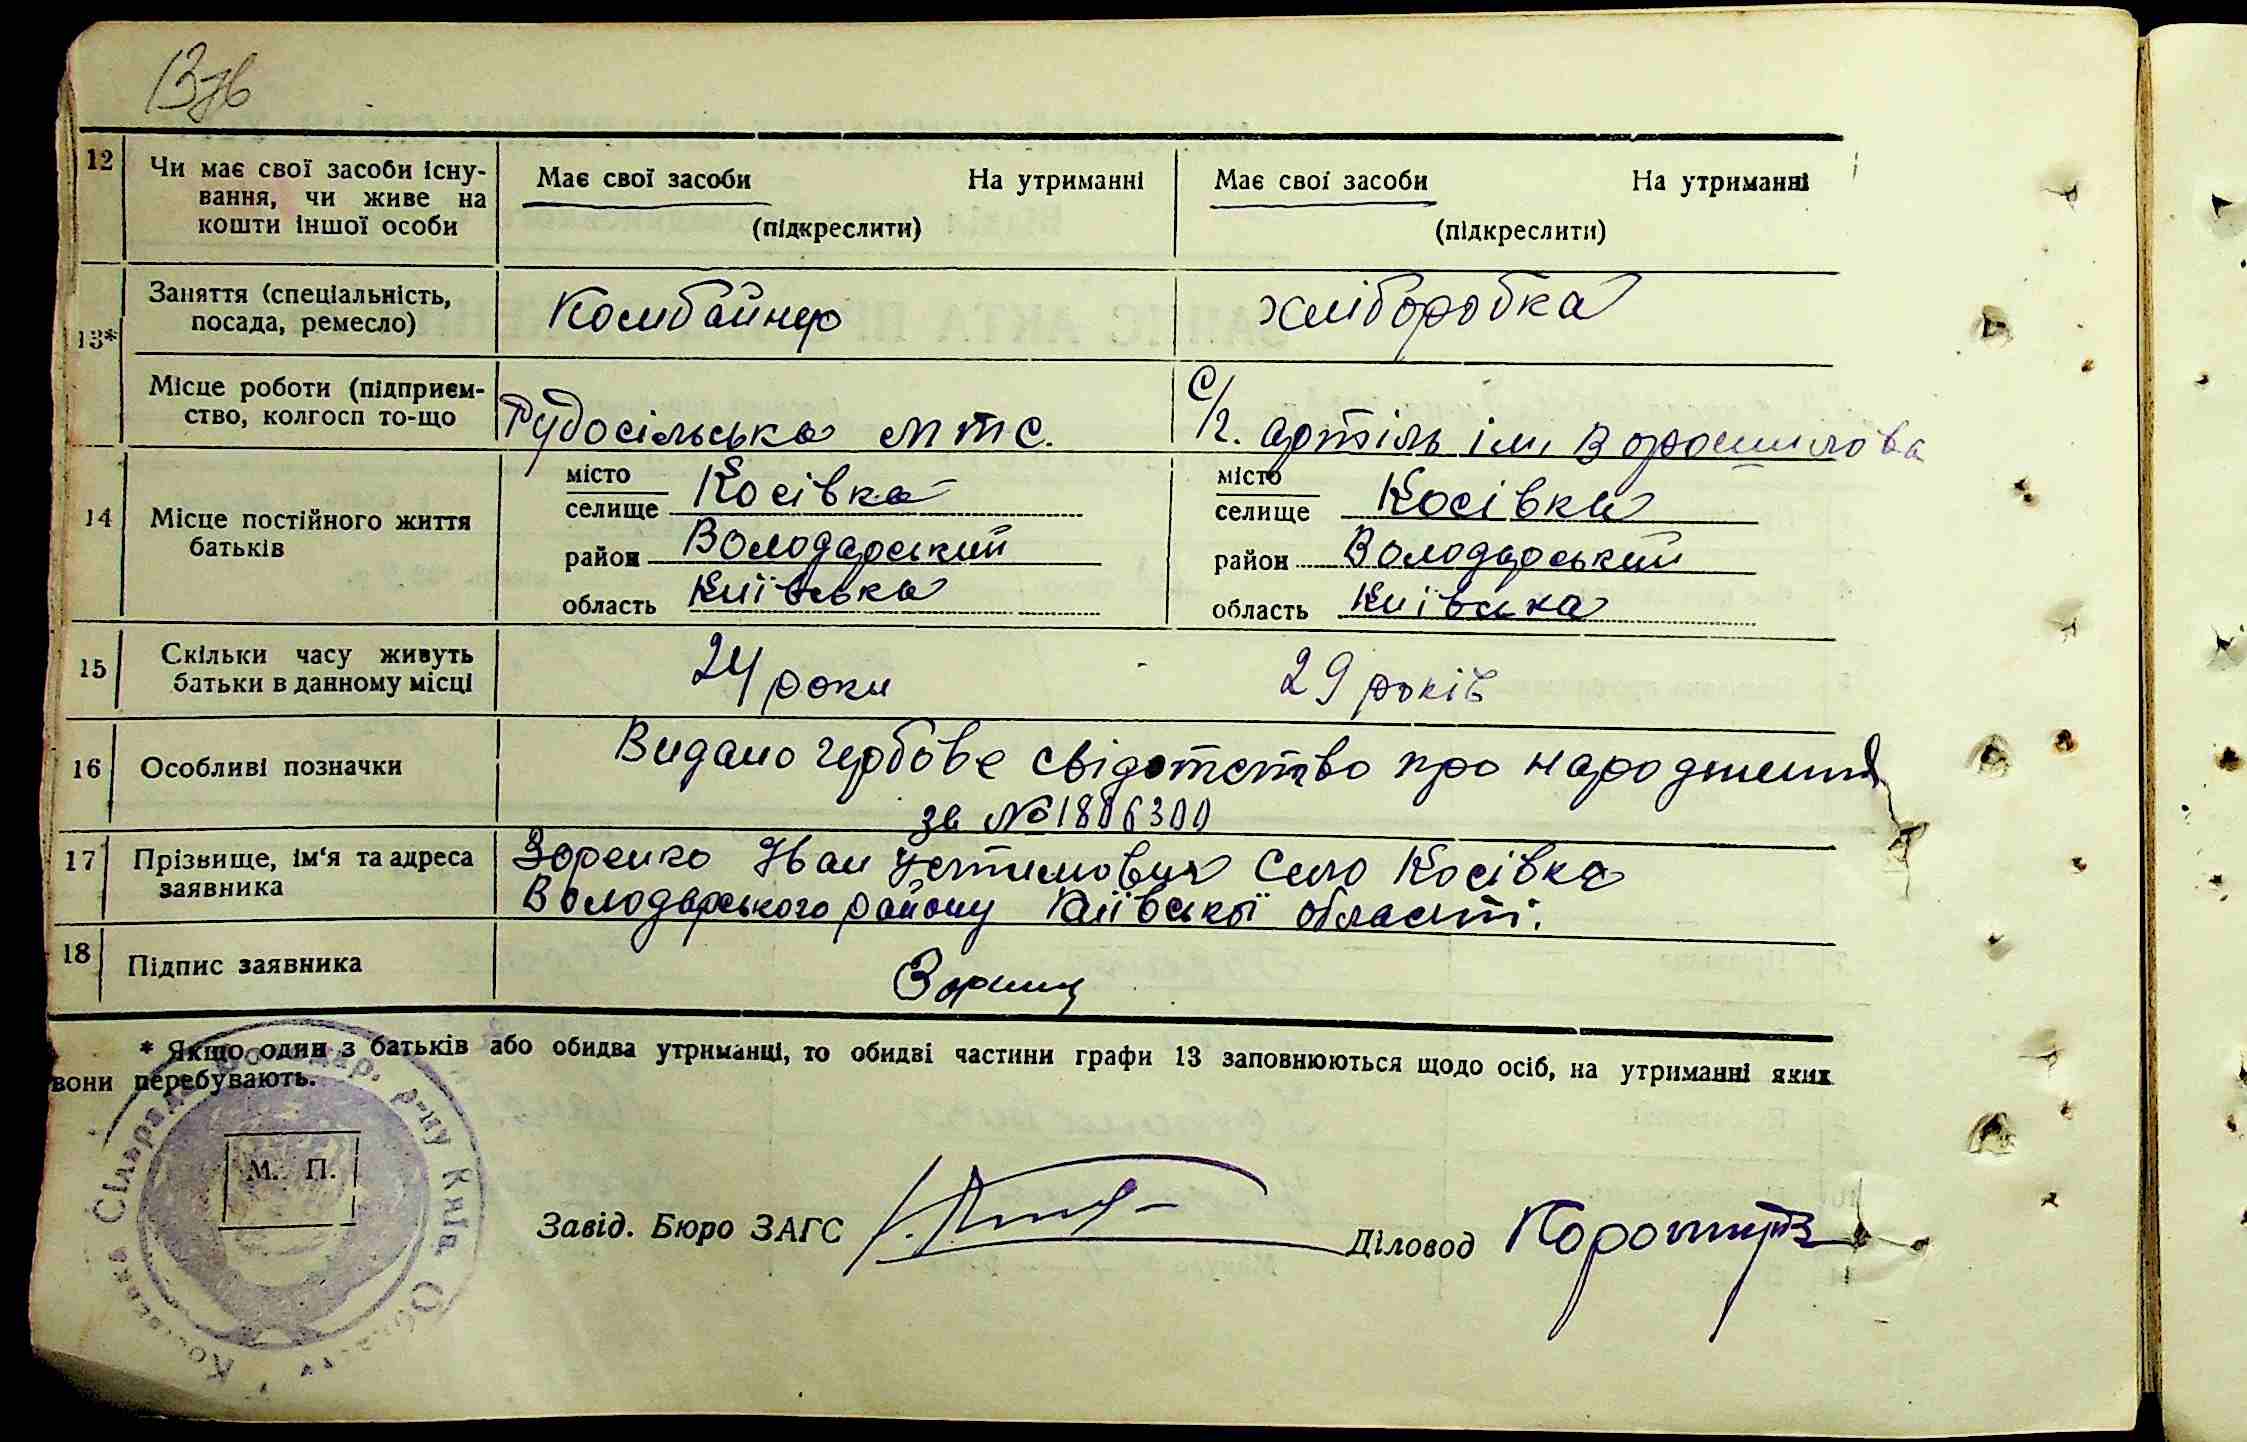 13зв
12 Чи має свої засоби існу-
вання, чи живе на
кошти іншої особи
Має свої засоби На утриманні
(підкреслити)
Має свої засоби На утриманні
(підкреслити)
13*
Заняття (спеціальність,
посада, ремесло)
Комбайнер
хліборобка
Місце роботи (підприєм-
ство, колгосп то-що
Рудосільська мтс.
С/г. артіль ім. Ворошилова
14 Місце постійного життя
батьків
місто
селище Косівка
район Володарський
область Київська
місто
селище Косівка
район Володарський
область Київська
15 Скільки часу живуть
батьки в данному місці
24 роки
29 років
16 Особливі позначки
Видано гербове свідотство про народження
за № 1806300
17 Прізвище, ім'я та адреса
заявника
Зоренко Іван Устимович село Косівка
Володарського району Київської області.
18 Підпис заявника
* Якщо один з батьків або обидва утриманці, то обидві частини графи 13 заповнюються щодо осіб, на утриманні яких
вони перебувають.
М. П.
Сільрада Володар. р-ну Київ. Обл.
Завід. Бюро ЗАГС
Діловод